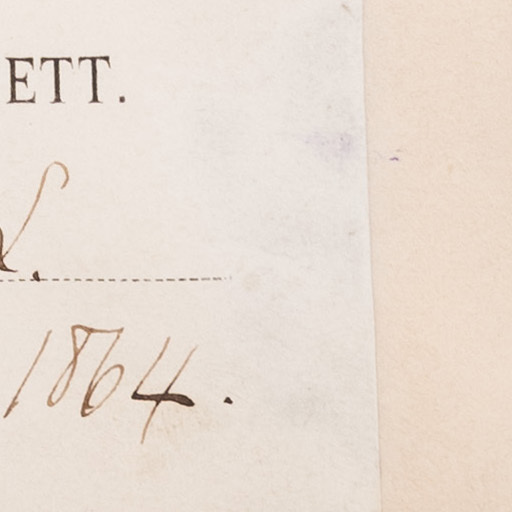 ETT.
1864.